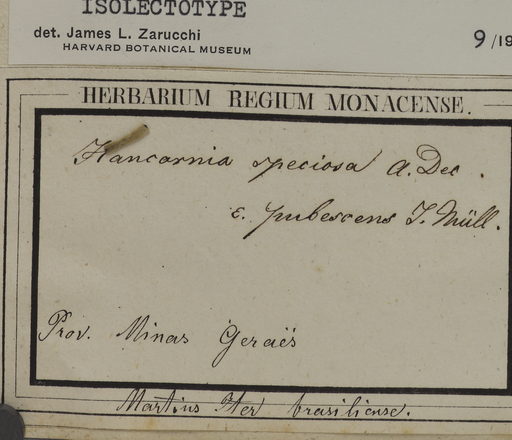 ISOLECTOTYPE
det. James L. Zarucchi 9/19
HARVARD BOTANICAL MUSEUM
HERBARIUM REGIUM MONACENSE.
Hancornia speciosa A. Dec.
ε. pubescens J. Müll.
Prov. Minas Geraës
Martius Iter brasiliense.